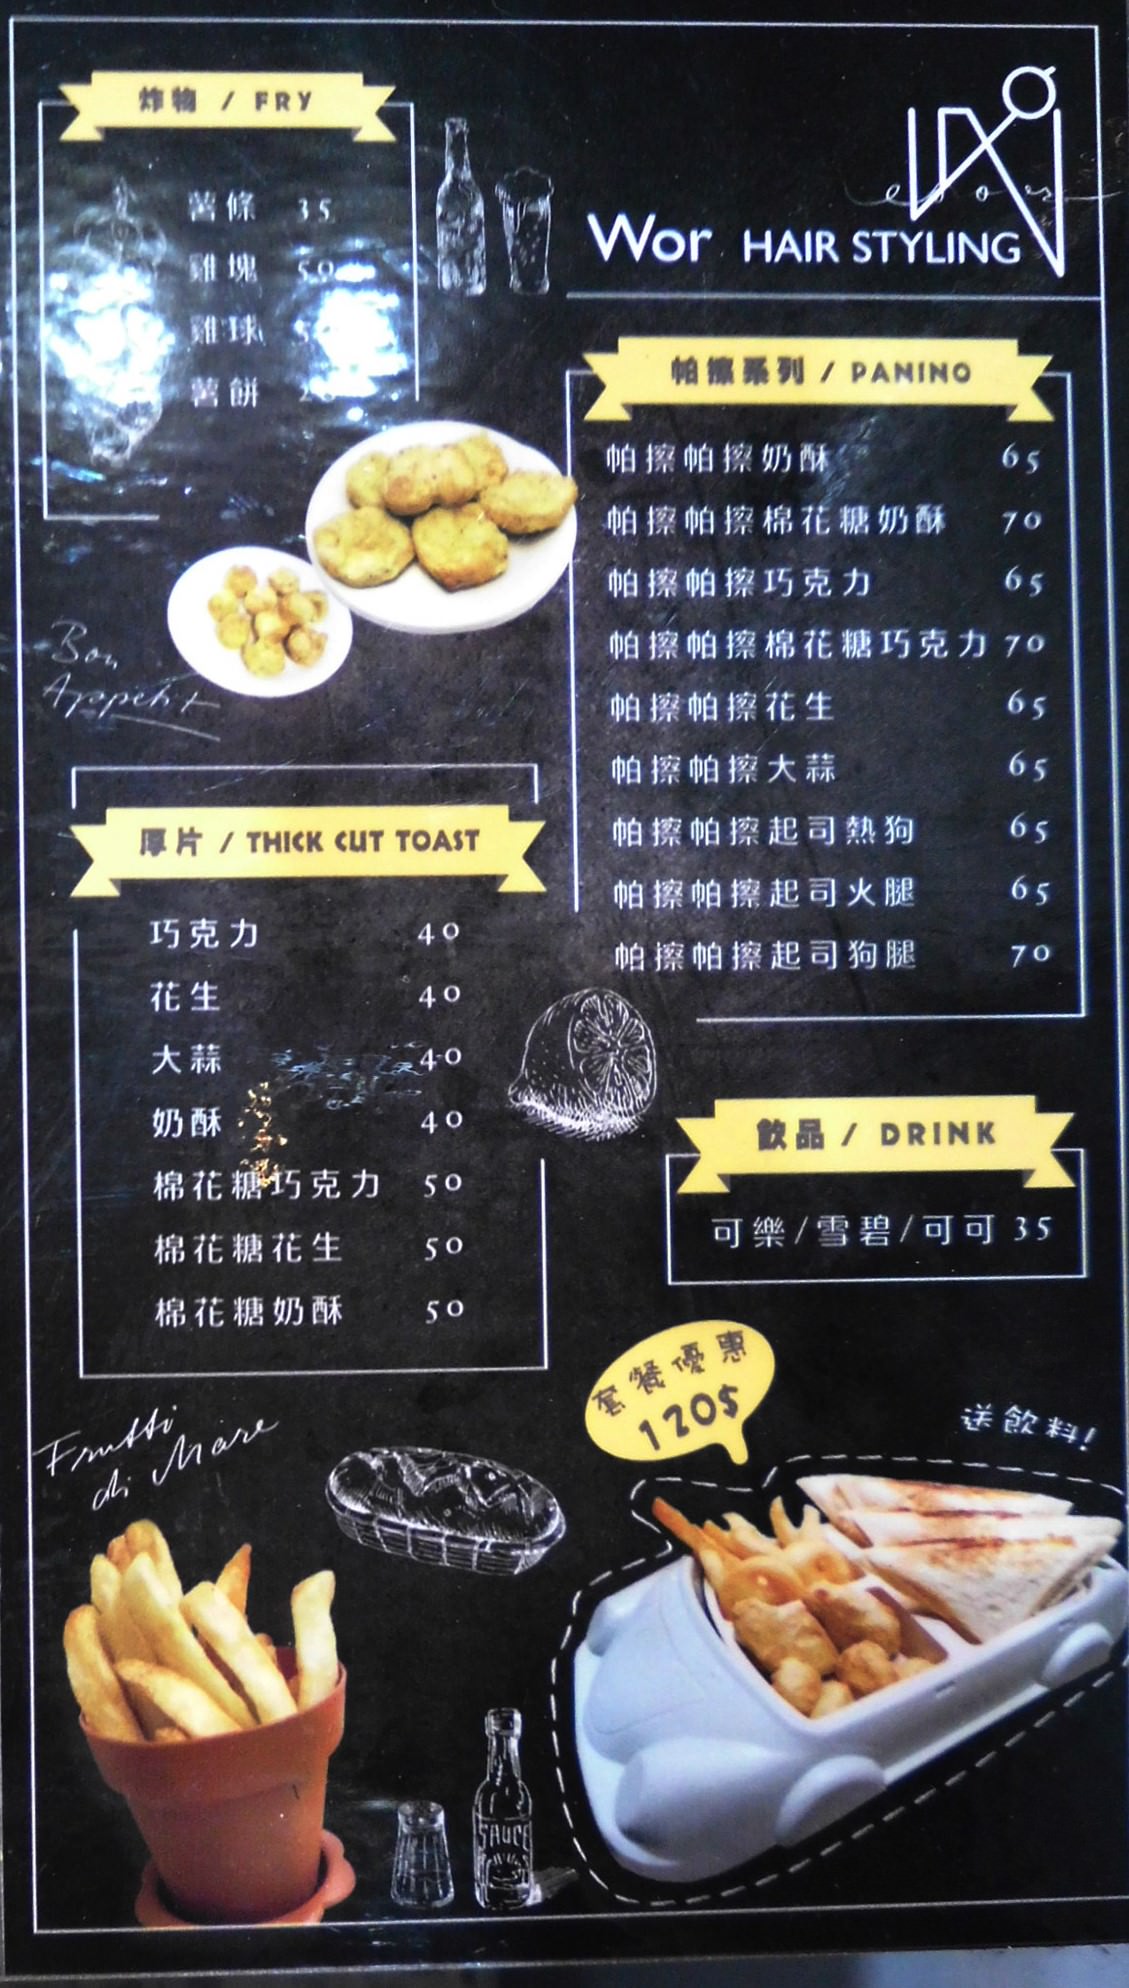 炸物 / FRY
薯條 35
雞塊 50
雞球
薯餅
Bon
Appetit
Wor HAIR STYLING
帕擦系列 / PANINO
帕擦帕擦奶酥 65
帕擦帕擦棉花糖奶酥 70
帕擦帕擦巧克力 65
帕擦帕擦棉花糖巧克力 70
帕擦帕擦花生 65
帕擦帕擦大蒜 65
帕擦帕擦起司熱狗 65
帕擦帕擦起司火腿 65
帕擦帕擦起司狗腿 70
厚片 / THICK CUT TOAST
巧克力 40
花生 40
大蒜 40
奶酥 40
棉花糖巧克力 50
棉花糖花生 50
棉花糖奶酥 50
飲品 / DRINK
可樂/雪碧/可可 35
套餐優惠
120$
送飲料!
Frutti
di Mare
SAUCE